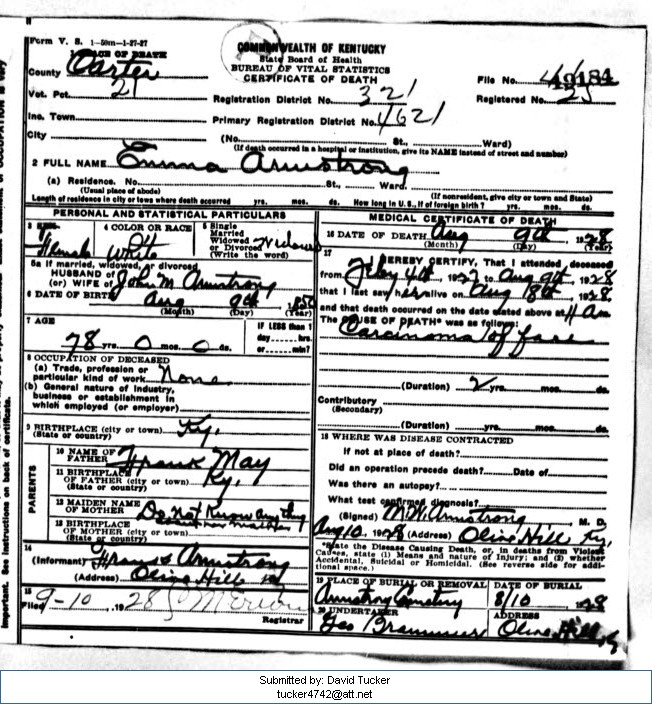 Form V. S. 1-50m-1-27-27
COMMONWEALTH OF KENTUCKY
State Board of Health
BUREAU OF VITAL STATISTICS
CERTIFICATE OF DEATH
1 PLACE OF DEATH
County Carter
File No. 19184
Vot. Pct. 21
Registration District No. 321
Registered No. 25
Inc. Town
Primary Registration District No. 4621
City (No. St., Ward)
(If death occurred in a hospital or institution, give its NAME instead of street and number)
2 FULL NAME Emma Armstrong
(a) Residence. No. St., Ward.
(Usual place of abode) (If nonresident, give city or town and State)
Length of residence in city or town where death occurred yrs. mos. ds. How long in U.S., if of foreign birth? yrs. mos. ds.
PERSONAL AND STATISTICAL PARTICULARS
3 SEX Female
4 COLOR OR RACE White
5 Single Married Widowed or Divorced (Write the word) Widowed
5a If married, widowed, or divorced
HUSBAND of
(or) WIFE of John M Armstrong
6 DATE OF BIRTH Aug 9th 1850
(Month) (Day) (Year)
7 AGE
78 yrs. 0 mos. 0 ds.
IF LESS than 1 day hrs. or min?
8 OCCUPATION OF DECEASED
(a) Trade, profession or particular kind of work None
(b) General nature of industry, business or establishment in which employed (or employer)
9 BIRTHPLACE (city or town) Ky.
(State or country)
PARENTS
10 NAME OF FATHER Frank May
11 BIRTHPLACE OF FATHER (city or town) Ky.
(State or country)
12 MAIDEN NAME OF MOTHER Do Not Know anything
13 BIRTHPLACE OF MOTHER (city or town)
(State or country)
14
(Informant) Armstrong
(Address) Olive Hill
15
Filed 9-10, 1928
Registrar
MEDICAL CERTIFICATE OF DEATH
16 DATE OF DEATH Aug 9th 1928
(Month) (Day) (Year)
17
I HEREBY CERTIFY, That I attended deceased
from Feby 4th, 1927 to Aug 9th, 1928
that I last saw her alive on Aug 8th, 1928
and that death occurred on the date stated above at 4 Am
The CAUSE OF DEATH* was as follows:
Carcinoma of face
(Duration) 2 yrs. mos. ds.
Contributory
(Secondary)
(Duration) yrs. mos. ds.
18 WHERE WAS DISEASE CONTRACTED
If not at place of death?
Did an operation precede death? Date of
Was there an autopsy?
What test confirmed diagnosis?
(Signed) Armstrong M. D.
Aug 10, 1928 (Address) Olive Hill Ky.
*State the Disease Causing Death, or, in deaths from Violent Causes, state (1) Means and nature of Injury; and (2) whether Accidental, Suicidal or Homicidal. (See reverse side for additional space.)
19 PLACE OF BURIAL OR REMOVAL
Armstrong Cemetery
DATE OF BURIAL
8/10, 1928
20 UNDERTAKER
Geo
ADDRESS
Olive Hill, Ky
Important. See instructions on back of certificate.
Submitted by: David Tucker
tucker4742@att.net